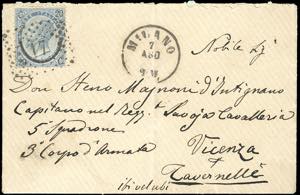 MILANO
7
AGO
Nobile Sig
Don Steno Magnoni d'Intignano
Capitano nel Regg.t Savoja Cavalleria
5 Squadrone
3 Corpo d'Armata
Vicenza
Tavernelle